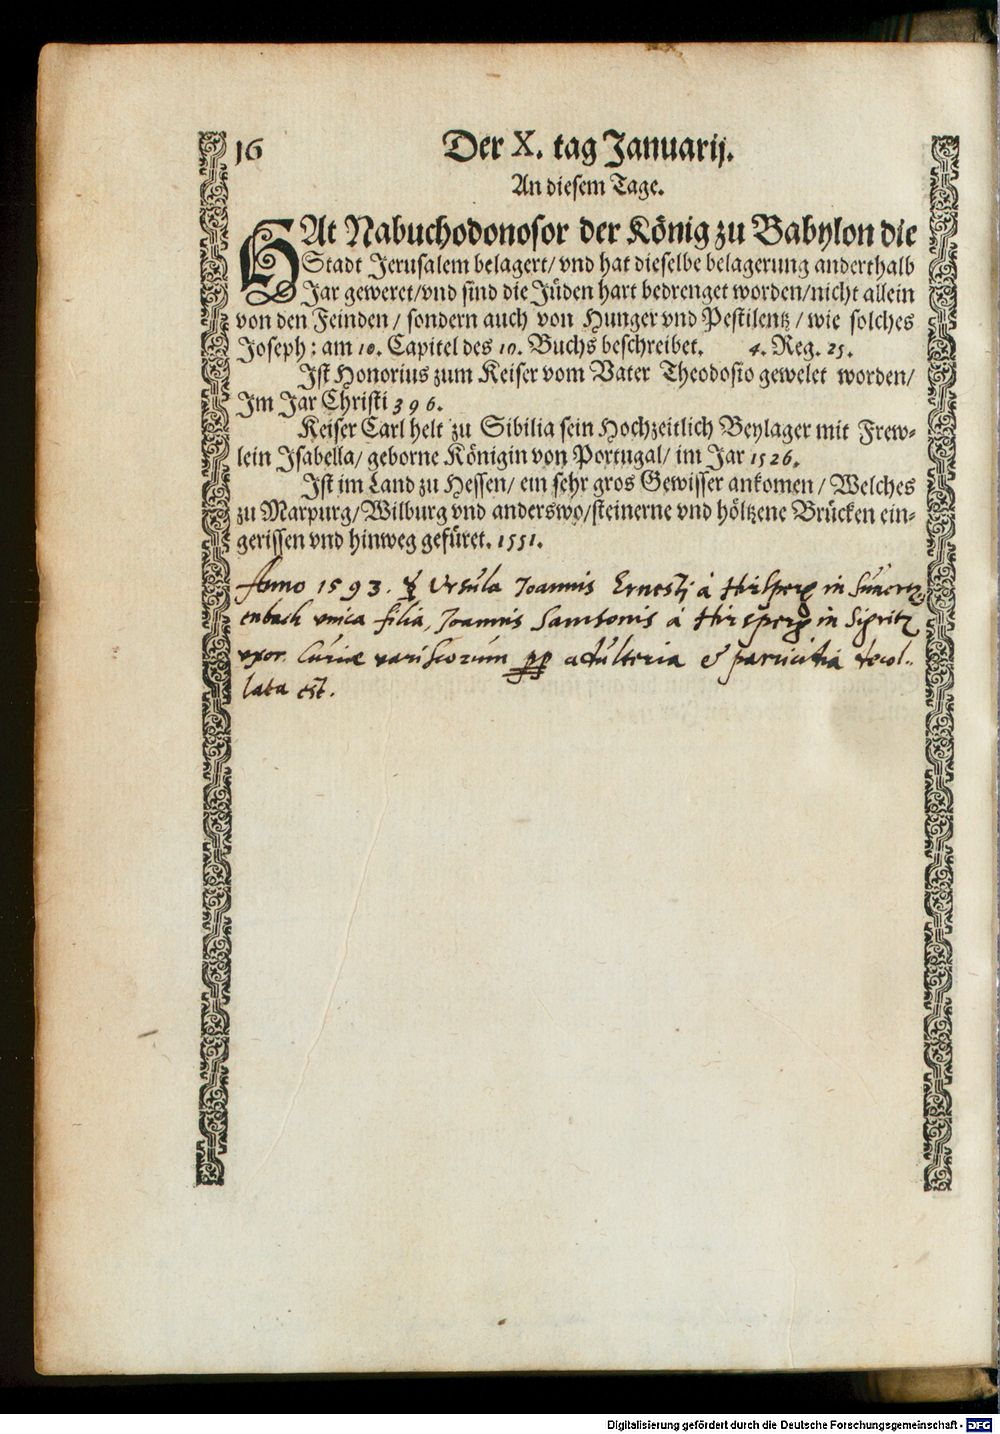 16
Der X. tag Januarij.
An diesem Tage.
HAt Nabuchodonosor der König zu Babylon die
Stadt Jerusalem belagert/ vnd hat dieselbe belagerung anderthalb
Jar geweret/vnd sind die Jüden hart bedrenget worden/nicht allein
von den Feinden / sondern auch von Hunger vnd Pestilentz / wie solches
Joseph: am 10. Capitel des 10. Buchs beschreibet. 4. Reg. 25.
Ist Honorius zum Keiser vom Vater Theodosio gewelet worden/
Im Jar Christi 396.
Keiser Carl helt zu Sibilia sein Hochzeitlich Beylager mit Frew-
lein Isabella/ geborne Königin von Portugal/ im Jar 1526.
Ist im Land zu Hessen/ ein sehr gros Gewisser ankomen / Welches
zu Marpurg/Wilburg vnd anderswo/steinerne vnd höltzene Brücken ein-
gerissen vnd hinweg gefüret. 1551.
Anno 1593. Ursula Joannis Ernesti à Hirsperg in
enbach vnica filia, Joannis Samsonis à Hirsperg in Sigritz
vxor. Curiæ variscorum pp adulteria & parricidia decol-
lata est.
Digitalisierung gefördert durch die Deutsche Forschungsgemeinschaft - DFG